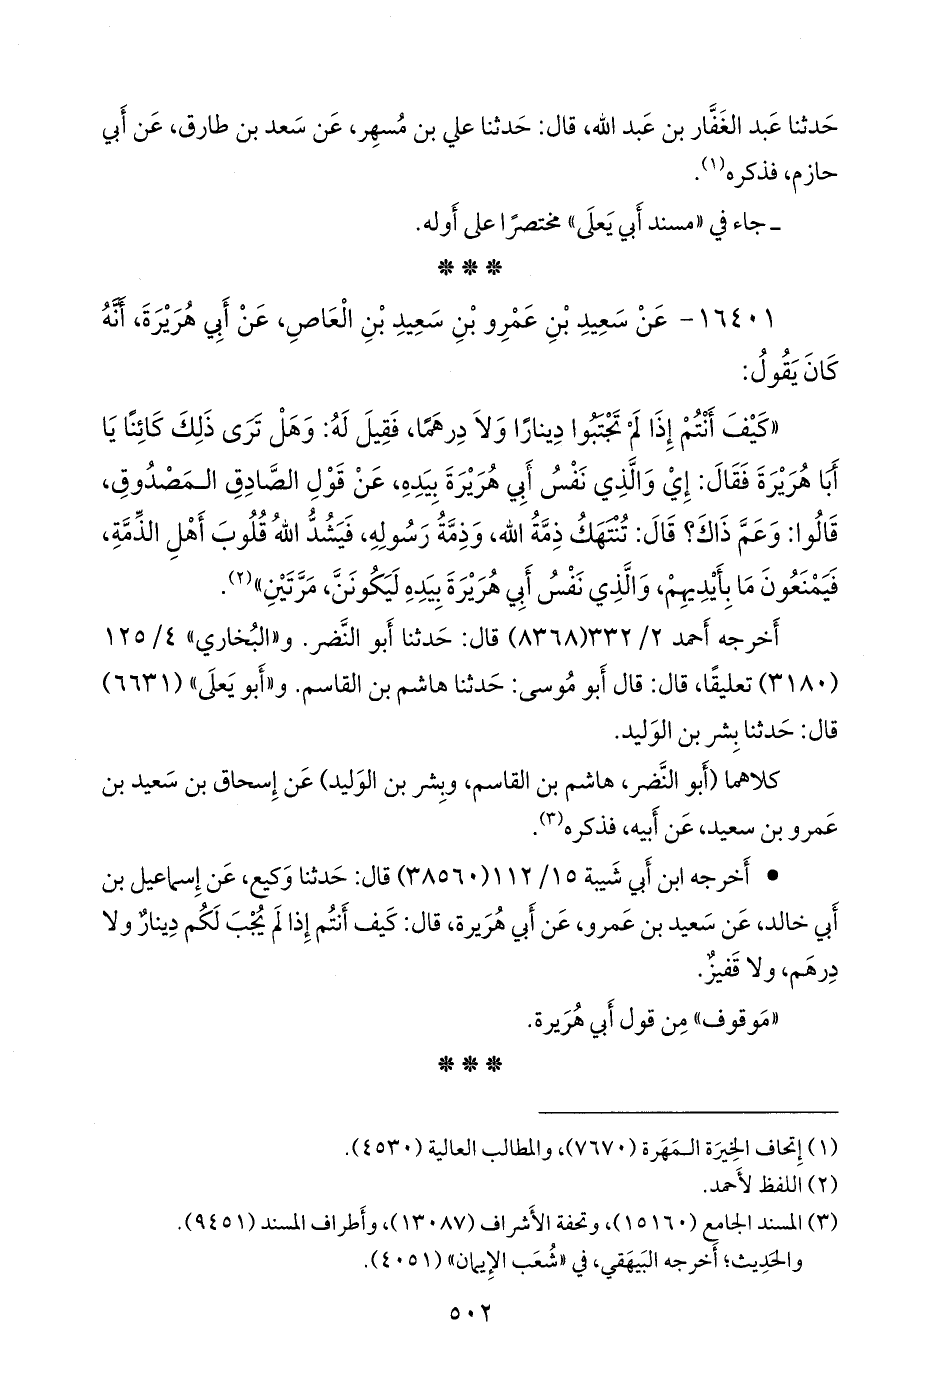 حَدثنا عَبد الغَفَّار بن عَبد الله، قال: حَدثنا علي بن مُسهِر، عَن سَعد بن طارق، عَن أَبي
حازم، فذكره(١).
ـ جاء في «مسند أَبي يَعلَى» مختصرًا على أَوله.
* * *
١٦٤٠١- عَنْ سَعِيدِ بْنِ عَمْرِو بْنِ سَعِيدِ بْنِ الْعَاصِ، عَنْ أَبِي هُرَيْرَةَ، أَنَّهُ
كَانَ يَقُولُ:
«كَيْفَ أَنْتُمْ إِذَا لَمْ تَجْتَبُوا دِينارًا وَلاَ دِرهَمًا، فَقِيلَ لَهُ: وَهَلْ تَرَى ذَلِكَ كَائِنًا يَا
أَبَا هُرَيْرَةَ فَقَالَ: إِيْ وَالَّذِي نَفْسُ أَبِي هُرَيْرَةَ بِيَدِهِ، عَنْ قَوْلِ الصَّادِقِ الـمَصْدُوقِ،
قَالُوا: وَعَمَّ ذَاكَ؟ قَالَ: تُنْتَهَكُ ذِمَّةُ الله، وَذِمَّةُ رَسُولِهِ، فَيَشُدُّ اللهُ قُلُوبَ أَهْلِ الذِّمَّةِ،
فَيَمْنَعُونَ مَا بِأَيْدِيهِمْ، وَالَّذِي نَفْسُ أَبِي هُرَيْرَةَ بِيَدِهِ لَيَكُونَنَّ، مَرَّتَيْنِ»(٢).
أَخرجه أَحمد ٢/ ٣٣٢(٨٣٦٨) قال: حَدثنا أَبو النَّضر. و«البُخاري» ٤/ ١٢٥
(٣١٨٠) تعليقًا، قال: قال أَبو مُوسى: حَدثنا هاشم بن القاسم. و«أَبو يَعلَى» (٦٦٣١)
قال: حَدثنا بِشر بن الوَليد.
كلاهما (أَبو النَّضر، هاشم بن القاسم، وبِشر بن الوَليد) عَن إِسحاق بن سَعيد بن
عَمرو بن سعيد، عَن أَبيه، فذكره(٣).
• أَخرجه ابن أَبي شَيبة ١٥/ ١١٢(٣٨٥٦٠) قال: حَدثنا وَكيع، عَن إِسماعيل بن
أَبي خالد، عَن سَعيد بن عَمرو، عَن أَبي هُرَيرة، قال: كَيف أَنتُم إِذا لَم يُجْبَ لَكُم دِينارٌ ولا
دِرهَم، ولا قَفيزٌ.
«مَوقوف» مِن قول أَبي هُرَيرة.
* * *
(١) إِتحاف الخِيرَة الـمَهَرة (٧٦٧٠)، والمطالب العالية (٤٥٣٠).
(٢) اللفظ لأَحمد.
(٣) المسند الجامع (١٥١٦٠)، وتحفة الأَشراف (١٣٠٨٧)، وأَطراف المسند (٩٤٥١).
والحَدِيث؛ أَخرجه البَيهَقي، في «شُعَب الإِيمان» (٤٠٥١).
٥٠٢